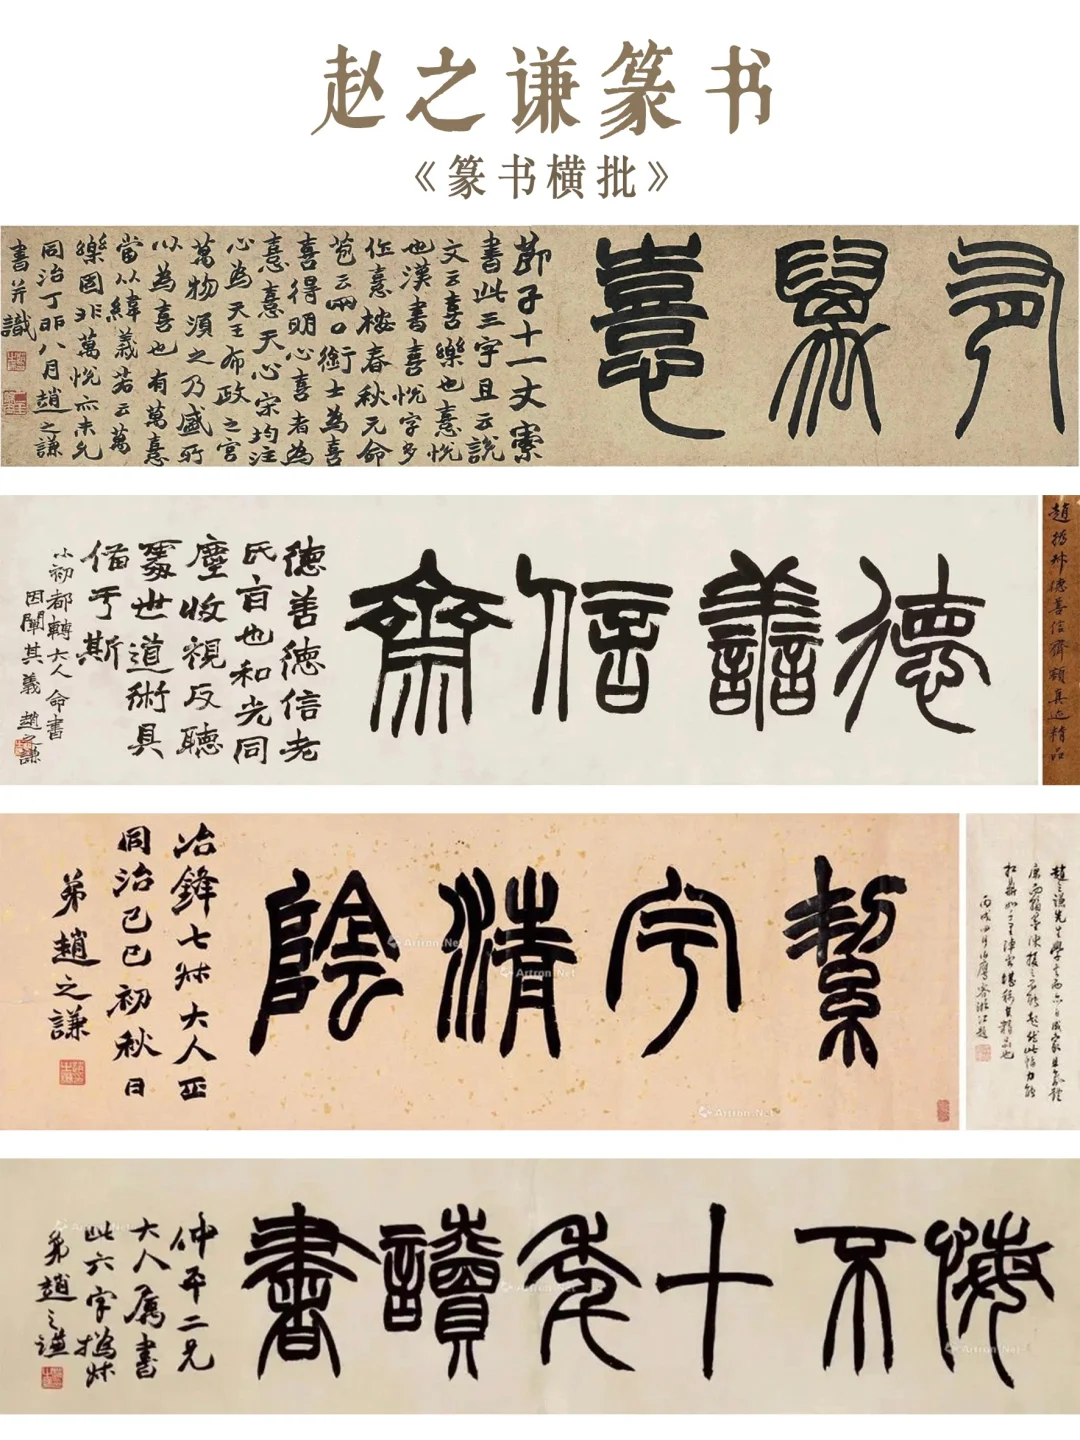 赵之谦篆书
《篆书横批》
有萬憙
節子十一丈索
書此三字且云說
文云喜樂也憙悅
也漢書喜悅字多
作憙樓春秋元命
苞云兩口銜士為喜
喜得明心喜者為
憙憙天心宋均注
心為天王布政之宮
萬物須之乃盛所
以為喜也有萬憙
當以緯義若云萬
樂固非萬悅亦未允
同治丁卯八月趙之謙
書并識
德譱信齋
德善德信老
氏言也和光同
塵收視反聽
處世道術具
備于斯
小初都轉大人命書
因闡其義 趙之謙
趙撝叔德善信齋額真迹精品
絜宇清陰
冶鋒七叔大人正
同治己巳初秋日
弟趙之謙
趙之謙先生學
丙戌四月
悔不十年讀書
仲平二兄
大人屬書
此六字撝叔
弟趙之謙
Artron.Net
Artron.Net
Artron.Net